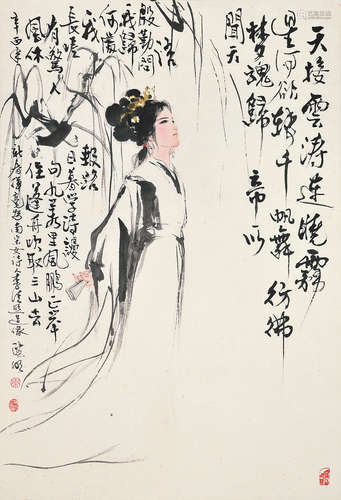 天接雲濤連曉霧
星河欲轉千帆舞彷彿
夢魂歸帝所
聞天
語
殷勤問
我歸
何處
我報路
長嗟日暮學詩謾
有驚人句九萬里風鵬正舉
風休住蓬舟吹取三山去
辛酉年新春題南宋女詩人李清照造像